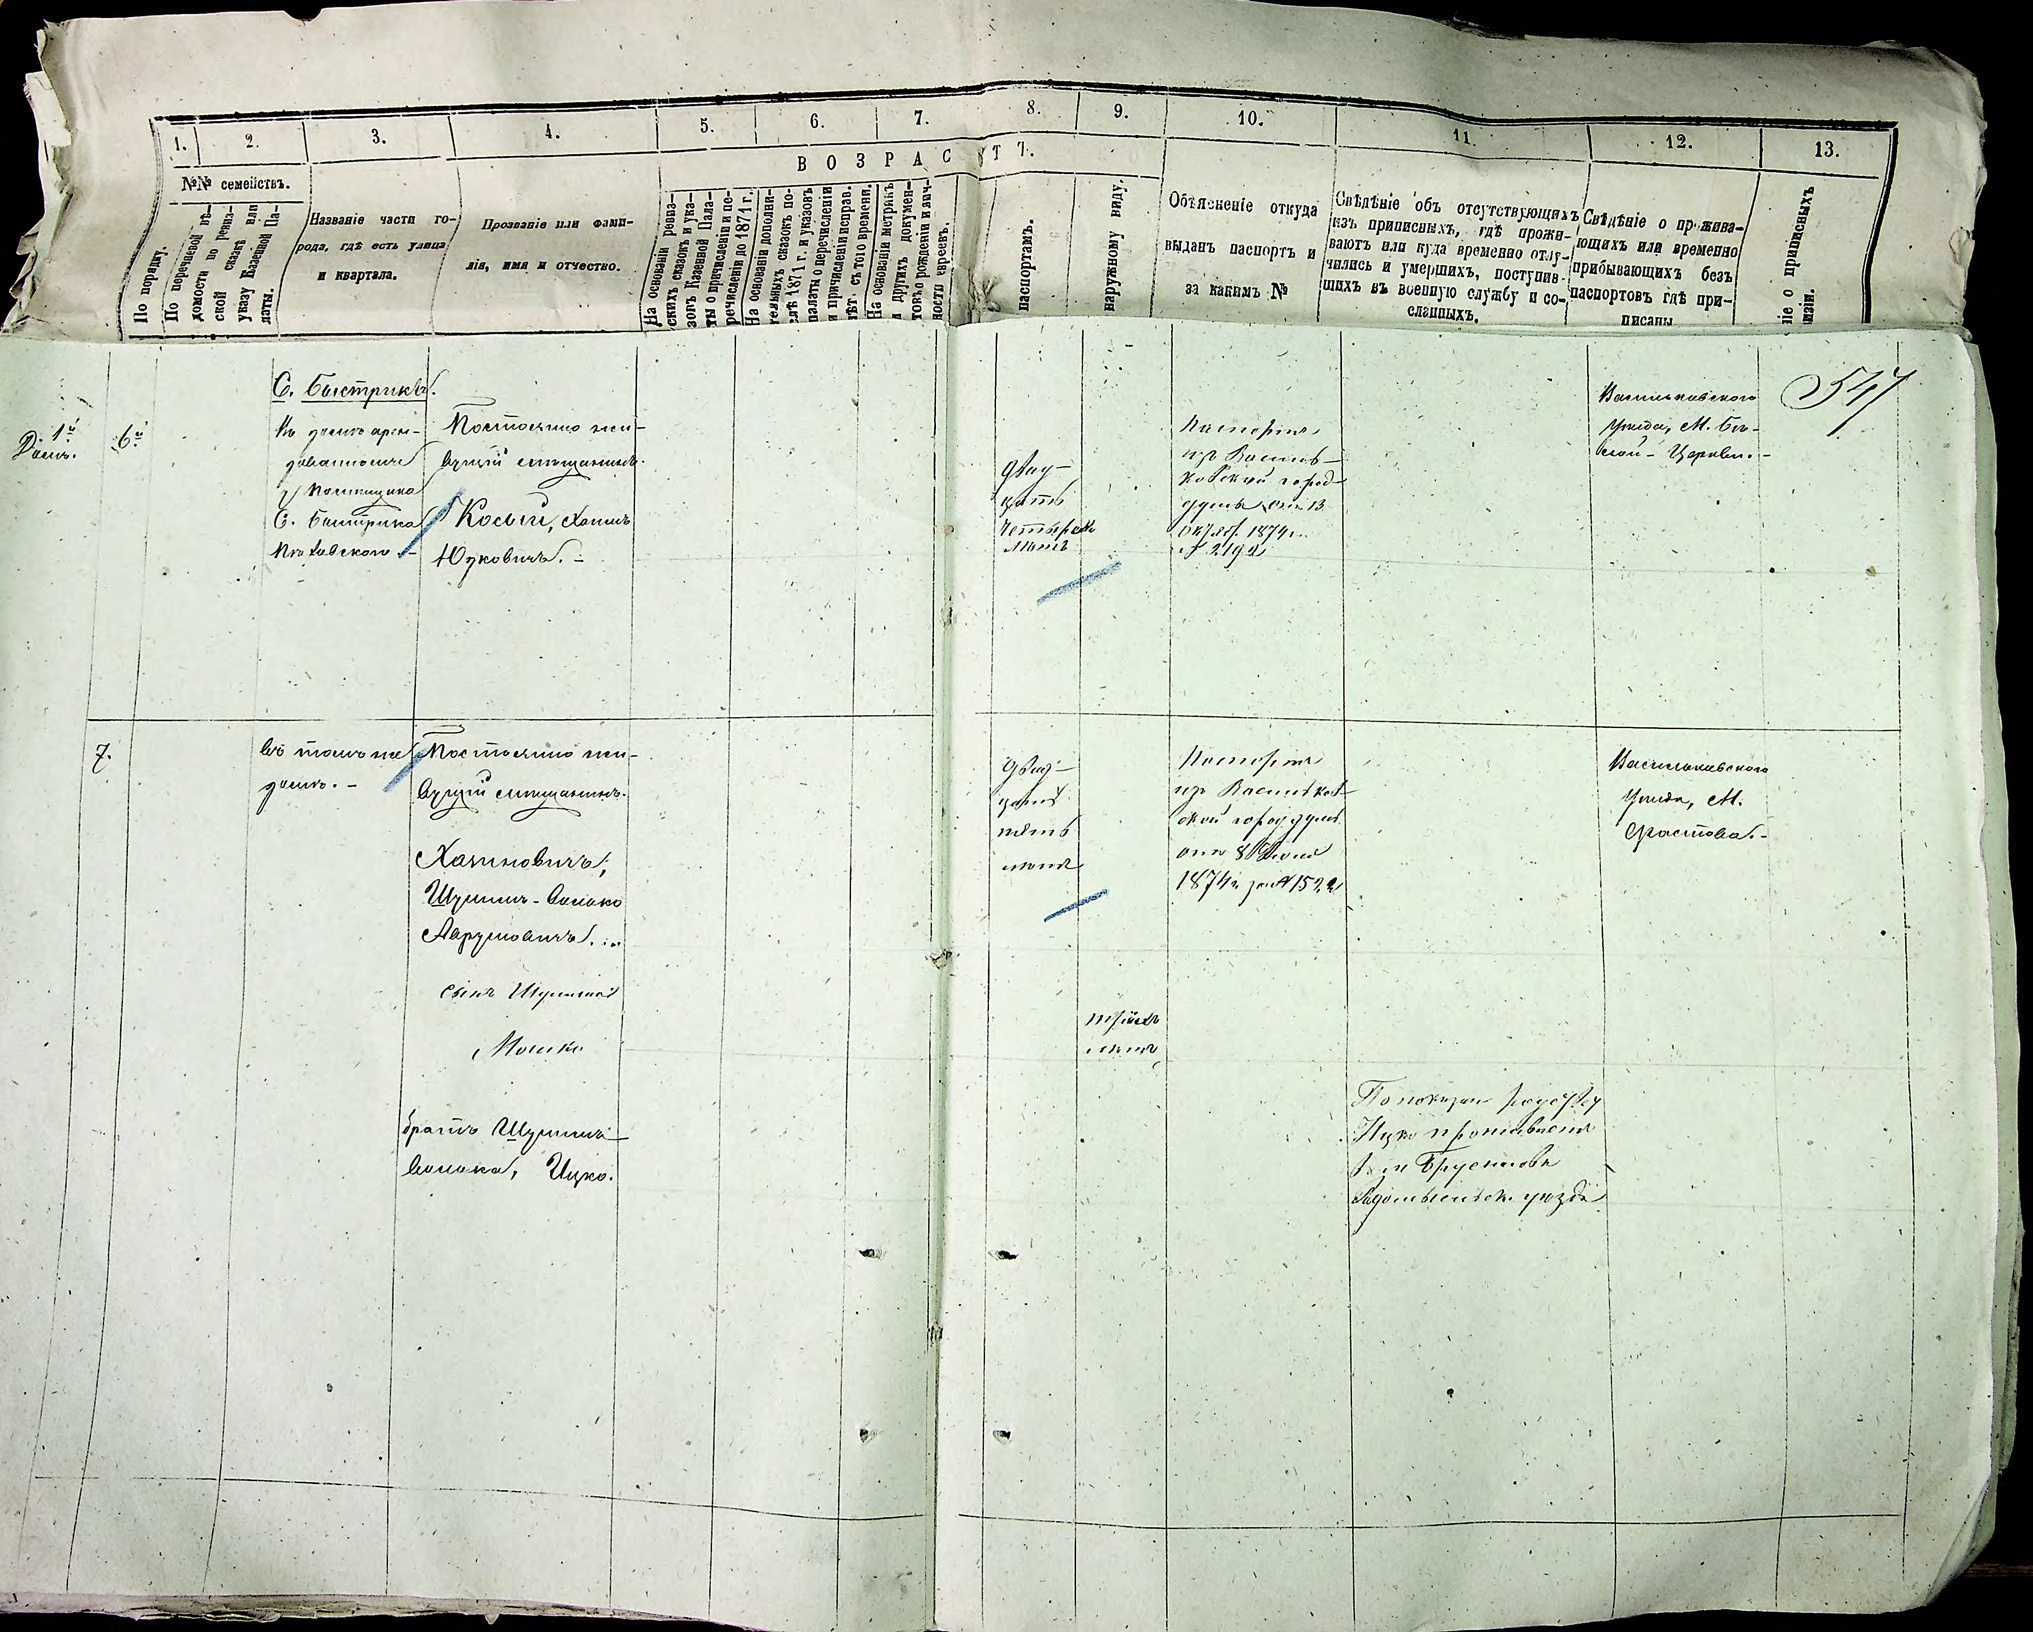 1. 2. 3. 4. 5. 6. 7. 8. 9. 10. 11. 12. 13.
В О З Р А С Т Ъ.
№№ семействъ.
По порядку.
По перечневой вѣ-
домости по ревиз-
ской сказкѣ или
указу Казенной Па-
латы.
Названіе части го-
рода, гдѣ есть улица
и квартала.
Прозваніе или фами-
лія, имя и отчество.
На основаніи ревиз-
скихъ сказокъ и ука-
зовъ Казенной Пала-
ты о причисленіи и пе-
речисленіи до 1871 г.
На основаніи дополни-
тельныхъ сказокъ по-
слѣ 1871 г. и указовъ
палаты о перечисленіи
и причисленіи исправ.
лѣт. съ того времени.
На основаніи метрикъ
и другихъ докумен-
товъ о рожденіи и лич-
ности евреевъ.
паспортамъ.
наружному виду.
Объясненіе откуда
выданъ паспортъ и
за какимъ №
Свѣдѣніе объ отсутствующихъ
изъ приписныхъ, гдѣ прожи-
ваютъ или куда временно отлу-
чились и умершихъ, поступив-
шихъ въ военную службу и со-
сланныхъ.
Свѣдѣніе о прожива-
ющихъ или временно
прибывающихъ безъ
паспортовъ гдѣ при-
писаны
ніе о приписныхъ
547
1й
Домъ.
6й
С. Быстрикъ.
Въ домѣ арен-
дованномъ
у помѣщика
С. Быстрика
Постоянно жи-
вущій мѣщанинъ.
Косый, Хаимъ
Юдковичъ. -
двад-
цать
четыре
лѣтъ
Паспортъ
изъ Василь-
ковской город
думы отъ 13
Октяб. 1874 г.
№ 2192
Васильковскаго
уѣзда, М. Бѣ-
лой - Церкви. -
7.
въ томъ же
домѣ. -
Постоянно жи-
вущій мѣщанинъ.
Хаиновичъ,
Шулимъ-Волько
Аврумовичъ.
двад-
цать
пять
лѣтъ
Паспортъ
изъ Васильков-
ской город думы
отъ 8 Іюня
1874 г за № 1522
Васильковскаго
уѣзда, М.
Фастова. -
сынъ Шулима
Мошко
трехъ
лѣтъ
братъ Шулима
Волька, Ицко.
По показан
Ицко проживаетъ
в м Брусиловѣ
Радомысльск. уѣзда